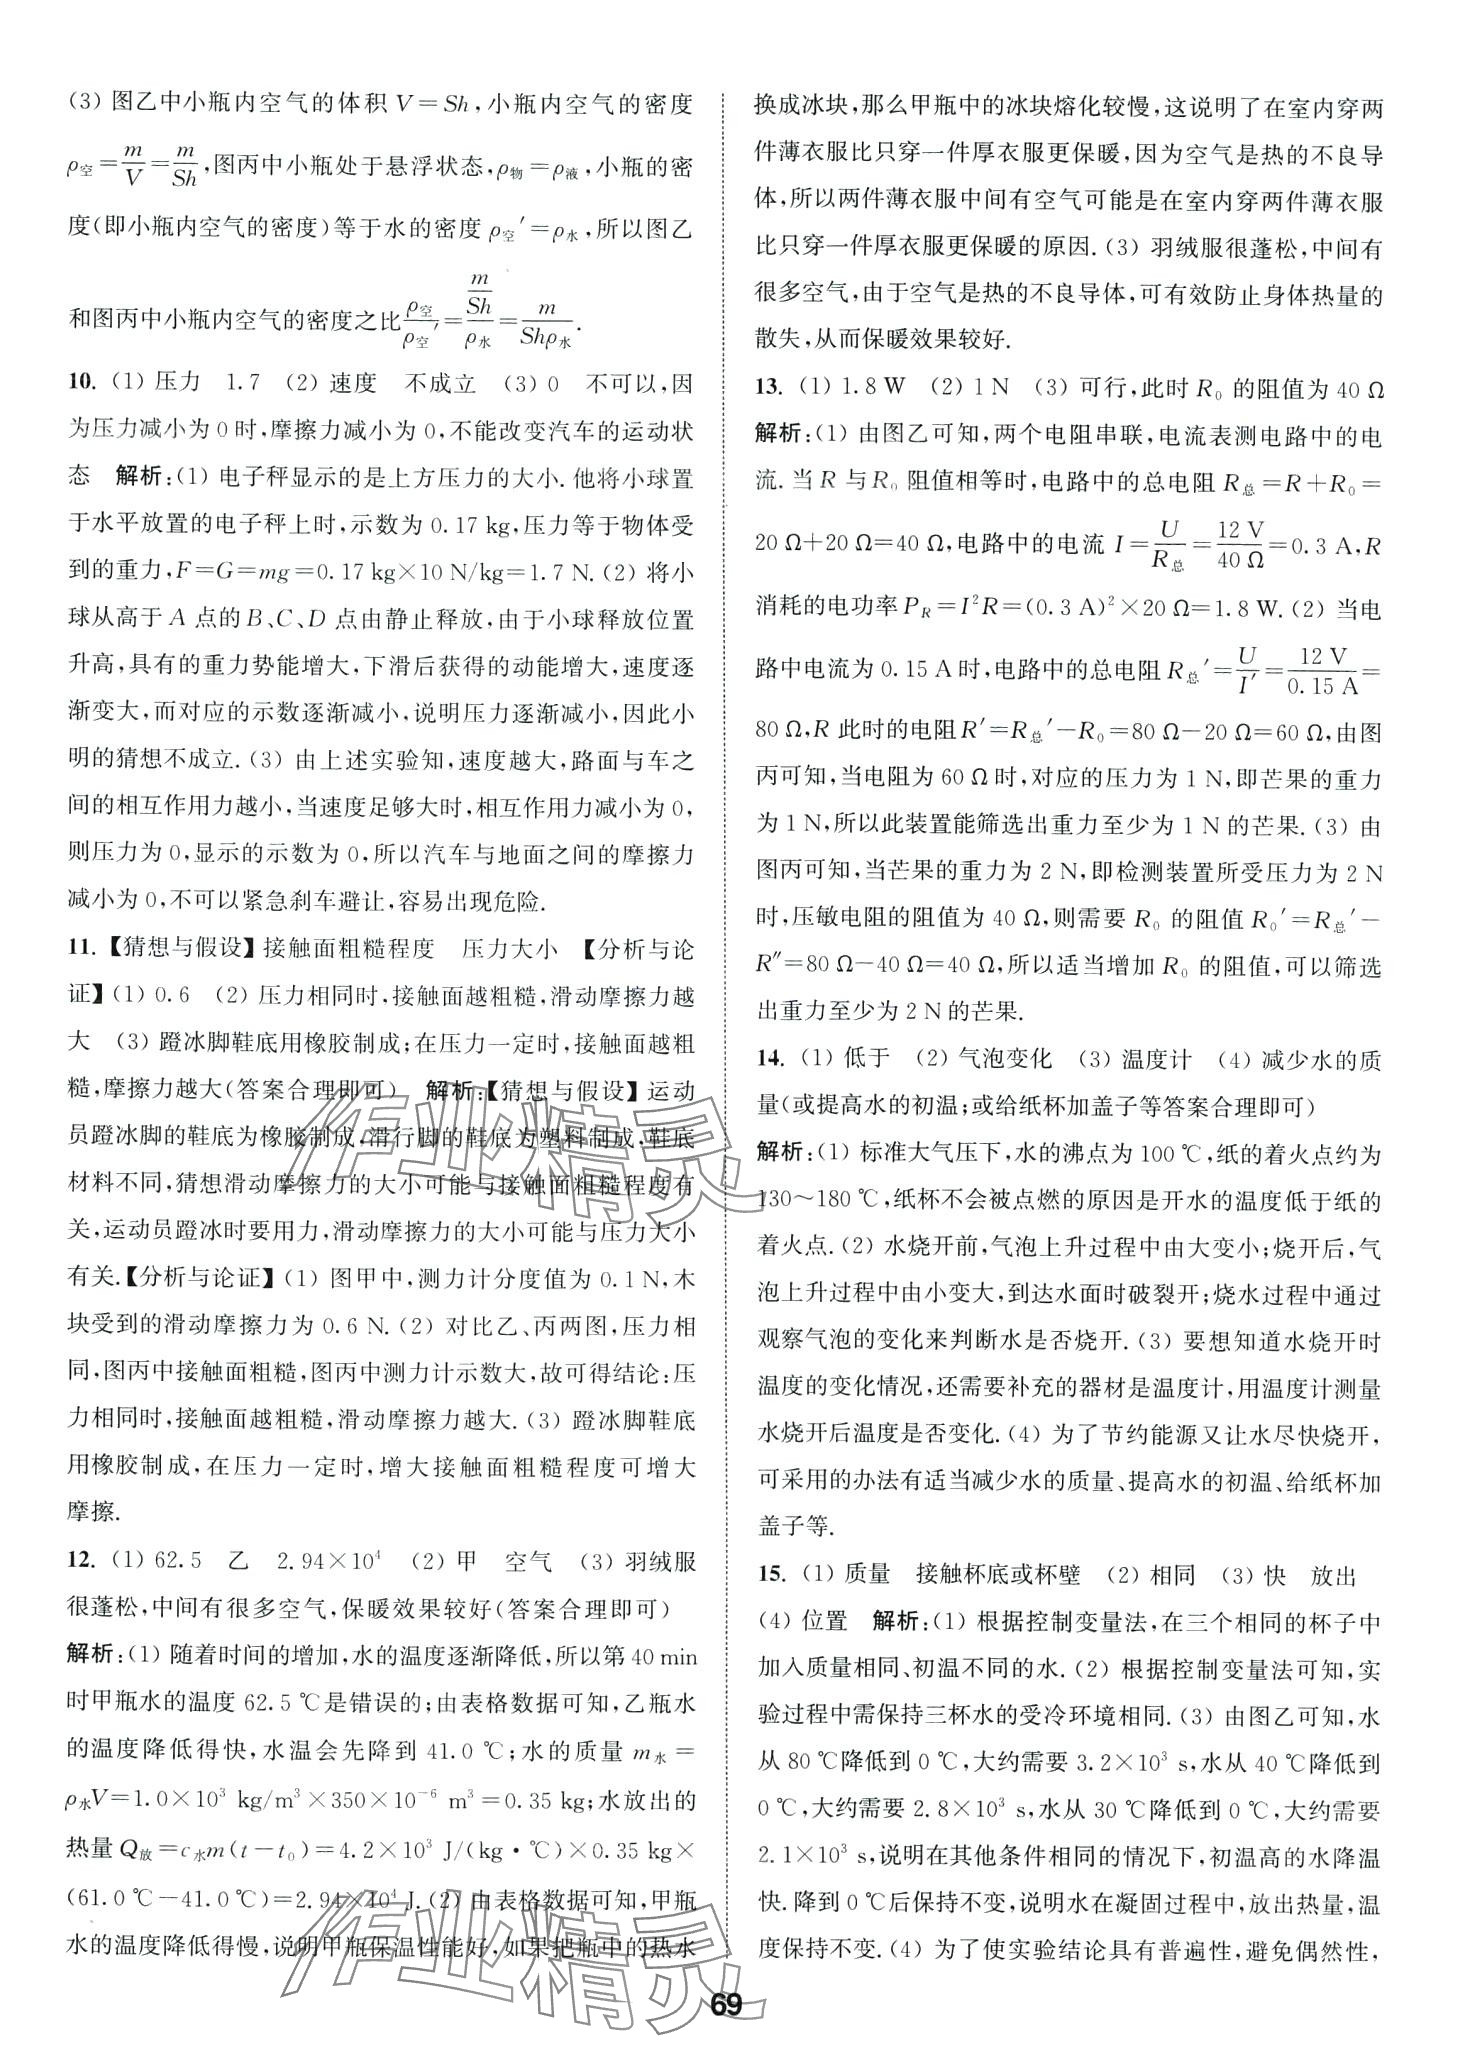 (3) 图乙中小瓶内空气的体积 V=Sh,小瓶内空气的密度
ρ空=m/V=m/Sh,图丙中小瓶处于悬浮状态,ρ物=ρ液,小瓶的密
度(即小瓶内空气的密度)等于水的密度 ρ空′=ρ水,所以图乙
和图丙中小瓶内空气的密度之比ρ空/ρ空′=(m/Sh)/ρ水=m/Shρ水.
10. (1) 压力 1.7 (2) 速度 不成立 (3) 0 不可以,因
为压力减小为0时,摩擦力减小为0,不能改变汽车的运动状
态 解析:(1) 电子秤显示的是上方压力的大小.他将小球置
于水平放置的电子秤上时,示数为0.17 kg,压力等于物体受
到的重力,F=G=mg=0.17 kg×10 N/kg=1.7 N.(2) 将小
球从高于A 点的B、C、D 点由静止释放,由于小球释放位置
升高,具有的重力势能增大,下滑后获得的动能增大,速度逐
渐变大,而对应的示数逐渐减小,说明压力逐渐减小,因此小
明的猜想不成立.(3) 由上述实验知,速度越大,路面与车之
间的相互作用力越小,当速度足够大时,相互作用力减小为0,
则压力为0,显示的示数为0,所以汽车与地面之间的摩擦力
减小为0,不可以紧急刹车避让,容易出现危险.
11.【猜想与假设】接触面粗糙程度 压力大小 【分析与论
证】(1) 0.6 (2) 压力相同时,接触面越粗糙,滑动摩擦力越
大 (3) 蹬冰脚鞋底用橡胶制成;在压力一定时,接触面越粗
糙,摩擦力越大(答案合理即可) 解析:【猜想与假设】运动
员蹬冰脚的鞋底为橡胶制成,滑行脚的鞋底为塑料制成,鞋底
材料不同,猜想滑动摩擦力的大小可能与接触面粗糙程度有
关,运动员蹬冰时要用力,滑动摩擦力的大小可能与压力大小
有关.【分析与论证】(1) 图甲中,测力计分度值为0.1 N,木
块受到的滑动摩擦力为0.6 N.(2) 对比乙、丙两图,压力相
同,图丙中接触面粗糙,图丙中测力计示数大,故可得结论:压
力相同时,接触面越粗糙,滑动摩擦力越大.(3) 蹬冰脚鞋底
用橡胶制成,在压力一定时,增大接触面粗糙程度可增大
摩擦.
12. (1) 62.5 乙 2.94×10⁴ (2) 甲 空气 (3) 羽绒服
很蓬松,中间有很多空气,保暖效果较好(答案合理即可)
解析:(1) 随着时间的增加,水的温度逐渐降低,所以第40 min
时甲瓶水的温度62.5 ℃是错误的;由表格数据可知,乙瓶水
的温度降低得快,水温会先降到41.0 ℃;水的质量 m水=
ρ水V=1.0×10³ kg/m³×350×10⁻⁶ m³=0.35 kg;水放出的
热量Q放=c水m(t-t₀)=4.2×10³ J/(kg·℃)×0.35 kg×
(61.0 ℃-41.0 ℃)=2.94×10⁴ J.(2) 由表格数据可知,甲瓶
水的温度降低得慢,说明甲瓶保温性能好,如果把瓶中的热水
换成冰块,那么甲瓶中的冰块熔化较慢,这说明了在室内穿两
件薄衣服比只穿一件厚衣服更保暖,因为空气是热的不良导
体,所以两件薄衣服中间有空气可能是在室内穿两件薄衣服
比只穿一件厚衣服更保暖的原因.(3) 羽绒服很蓬松,中间有
很多空气,由于空气是热的不良导体,可有效防止身体热量的
散失,从而保暖效果较好.
13. (1) 1.8 W (2) 1 N (3) 可行,此时 R₀ 的阻值为40 Ω
解析:(1) 由图乙可知,两个电阻串联,电流表测电路中的电
流.当 R 与R₀ 阻值相等时,电路中的总电阻 R总=R+R₀=
20 Ω+20 Ω=40 Ω,电路中的电流 I=U/R总=12 V/40 Ω=0.3 A,R
消耗的电功率 P_R=I²R=(0.3 A)²×20 Ω=1.8 W.(2) 当电
路中电流为0.15 A时,电路中的总电阻 R总′=U/I′=12 V/0.15 A=
80 Ω,R 此时的电阻R′=R总′-R₀=80 Ω-20 Ω=60 Ω,由图
丙可知,当电阻为60 Ω时,对应的压力为1 N,即芒果的重力
为1 N,所以此装置能筛选出重力至少为1 N的芒果.(3) 由
图丙可知,当芒果的重力为2 N,即检测装置所受压力为2 N
时,压敏电阻的阻值为40 Ω,则需要 R₀ 的阻值R₀′=R总′-
R″=80 Ω-40 Ω=40 Ω,所以适当增加 R₀ 的阻值,可以筛选
出重力至少为2 N的芒果.
14. (1) 低于 (2) 气泡变化 (3) 温度计 (4) 减少水的质
量(或提高水的初温;或给纸杯加盖子等答案合理即可)
解析:(1) 标准大气压下,水的沸点为100 ℃,纸的着火点约为
130～180 ℃,纸杯不会被点燃的原因是开水的温度低于纸的
着火点.(2) 水烧开前,气泡上升过程中由大变小;烧开后,气
泡上升过程中由小变大,到达水面时破裂开;烧水过程中通过
观察气泡的变化来判断水是否烧开.(3) 要想知道水烧开时
温度的变化情况,还需要补充的器材是温度计,用温度计测量
水烧开后温度是否变化.(4) 为了节约能源又让水尽快烧开,
可采用的办法有适当减少水的质量、提高水的初温、给纸杯加
盖子等.
15. (1) 质量 接触杯底或杯壁 (2) 相同 (3) 快 放出
(4) 位置 解析:(1) 根据控制变量法,在三个相同的杯子中
加入质量相同、初温不同的水.(2) 根据控制变量法可知,实
验过程中需保持三杯水的受冷环境相同.(3) 由图乙可知,水
从80 ℃降低到0 ℃,大约需要3.2×10³ s,水从40 ℃降低到
0 ℃,大约需要2.8×10³ s,水从30 ℃降低到0 ℃,大约需要
2.1×10³ s,说明在其他条件相同的情况下,初温高的水降温
快.降到0 ℃后保持不变,说明水在凝固过程中,放出热量,温
度保持不变.(4) 为了使实验结论具有普遍性,避免偶然性,
作业精灵
作业精灵
69